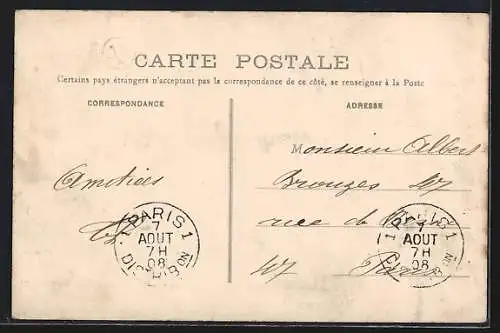 CARTE POSTALE
Certains pays étrangers n'acceptant pas la correspondance de ce côté, se renseigner à la Poste
CORRESPONDANCE
ADRESSE
Monsieur Albert
Amitiés
rue de
Paris
PARIS 1
7
AOUT
7H
08
DISTRIBON
1 PARIS 1
7
AOUT
7H
08